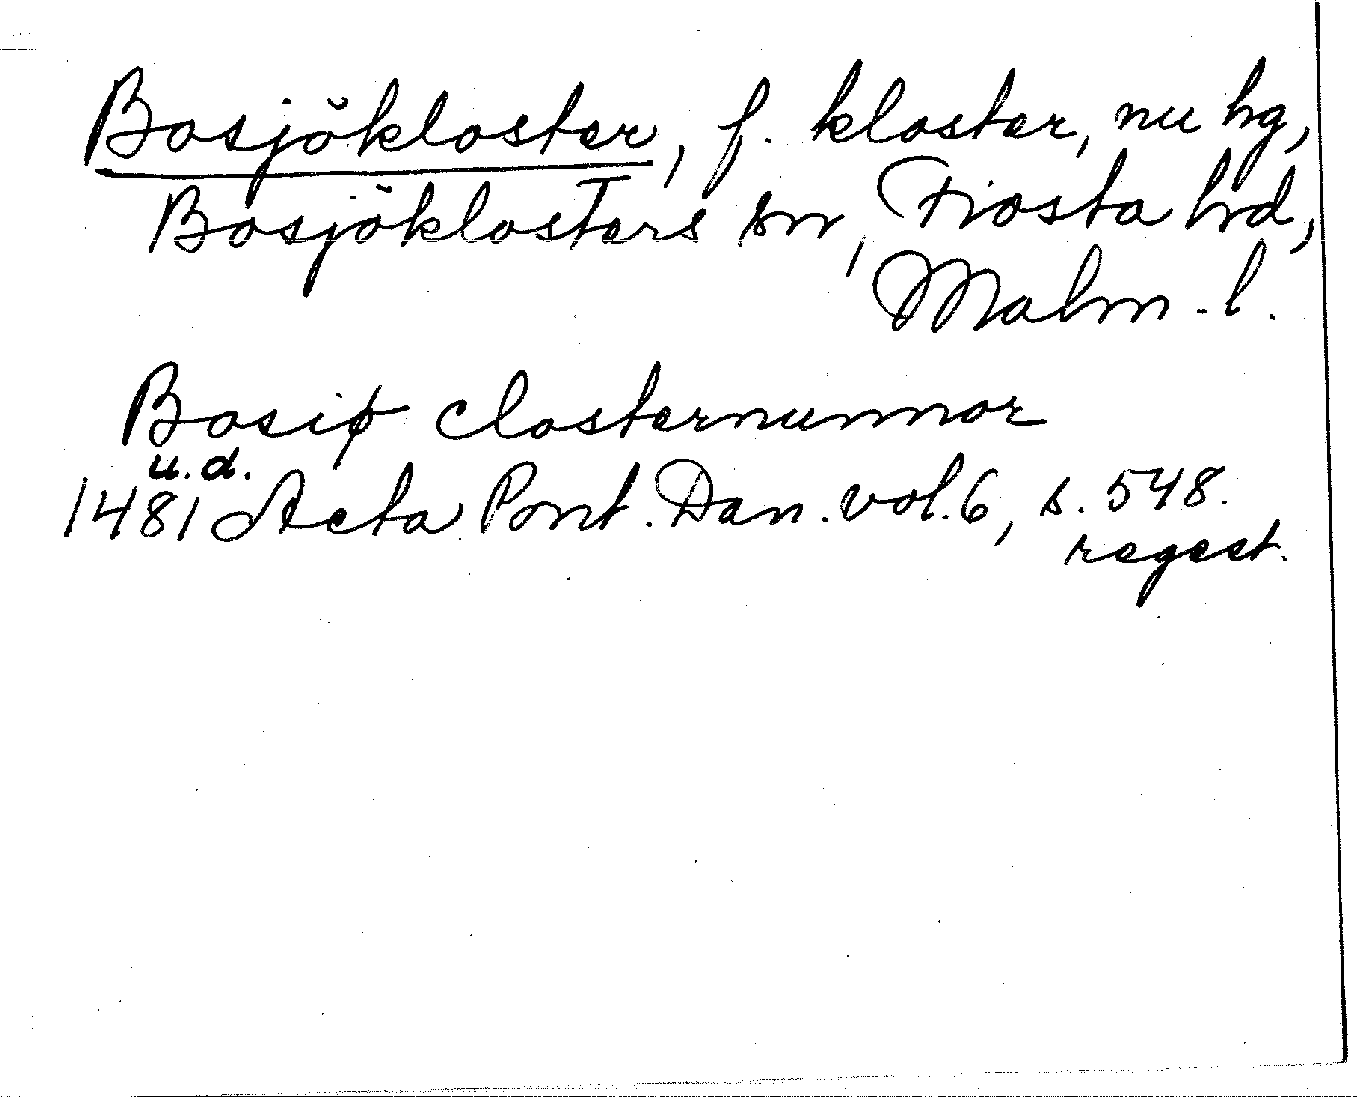 Bosjökloster, f. kloster, nu hg,
Bosjöklosters sn, Frosta hd,
Malm. l.
Bosiø closternunnor
u.d.
1481 Acta Pont. Dan. vol. 6, s. 548.
regest.